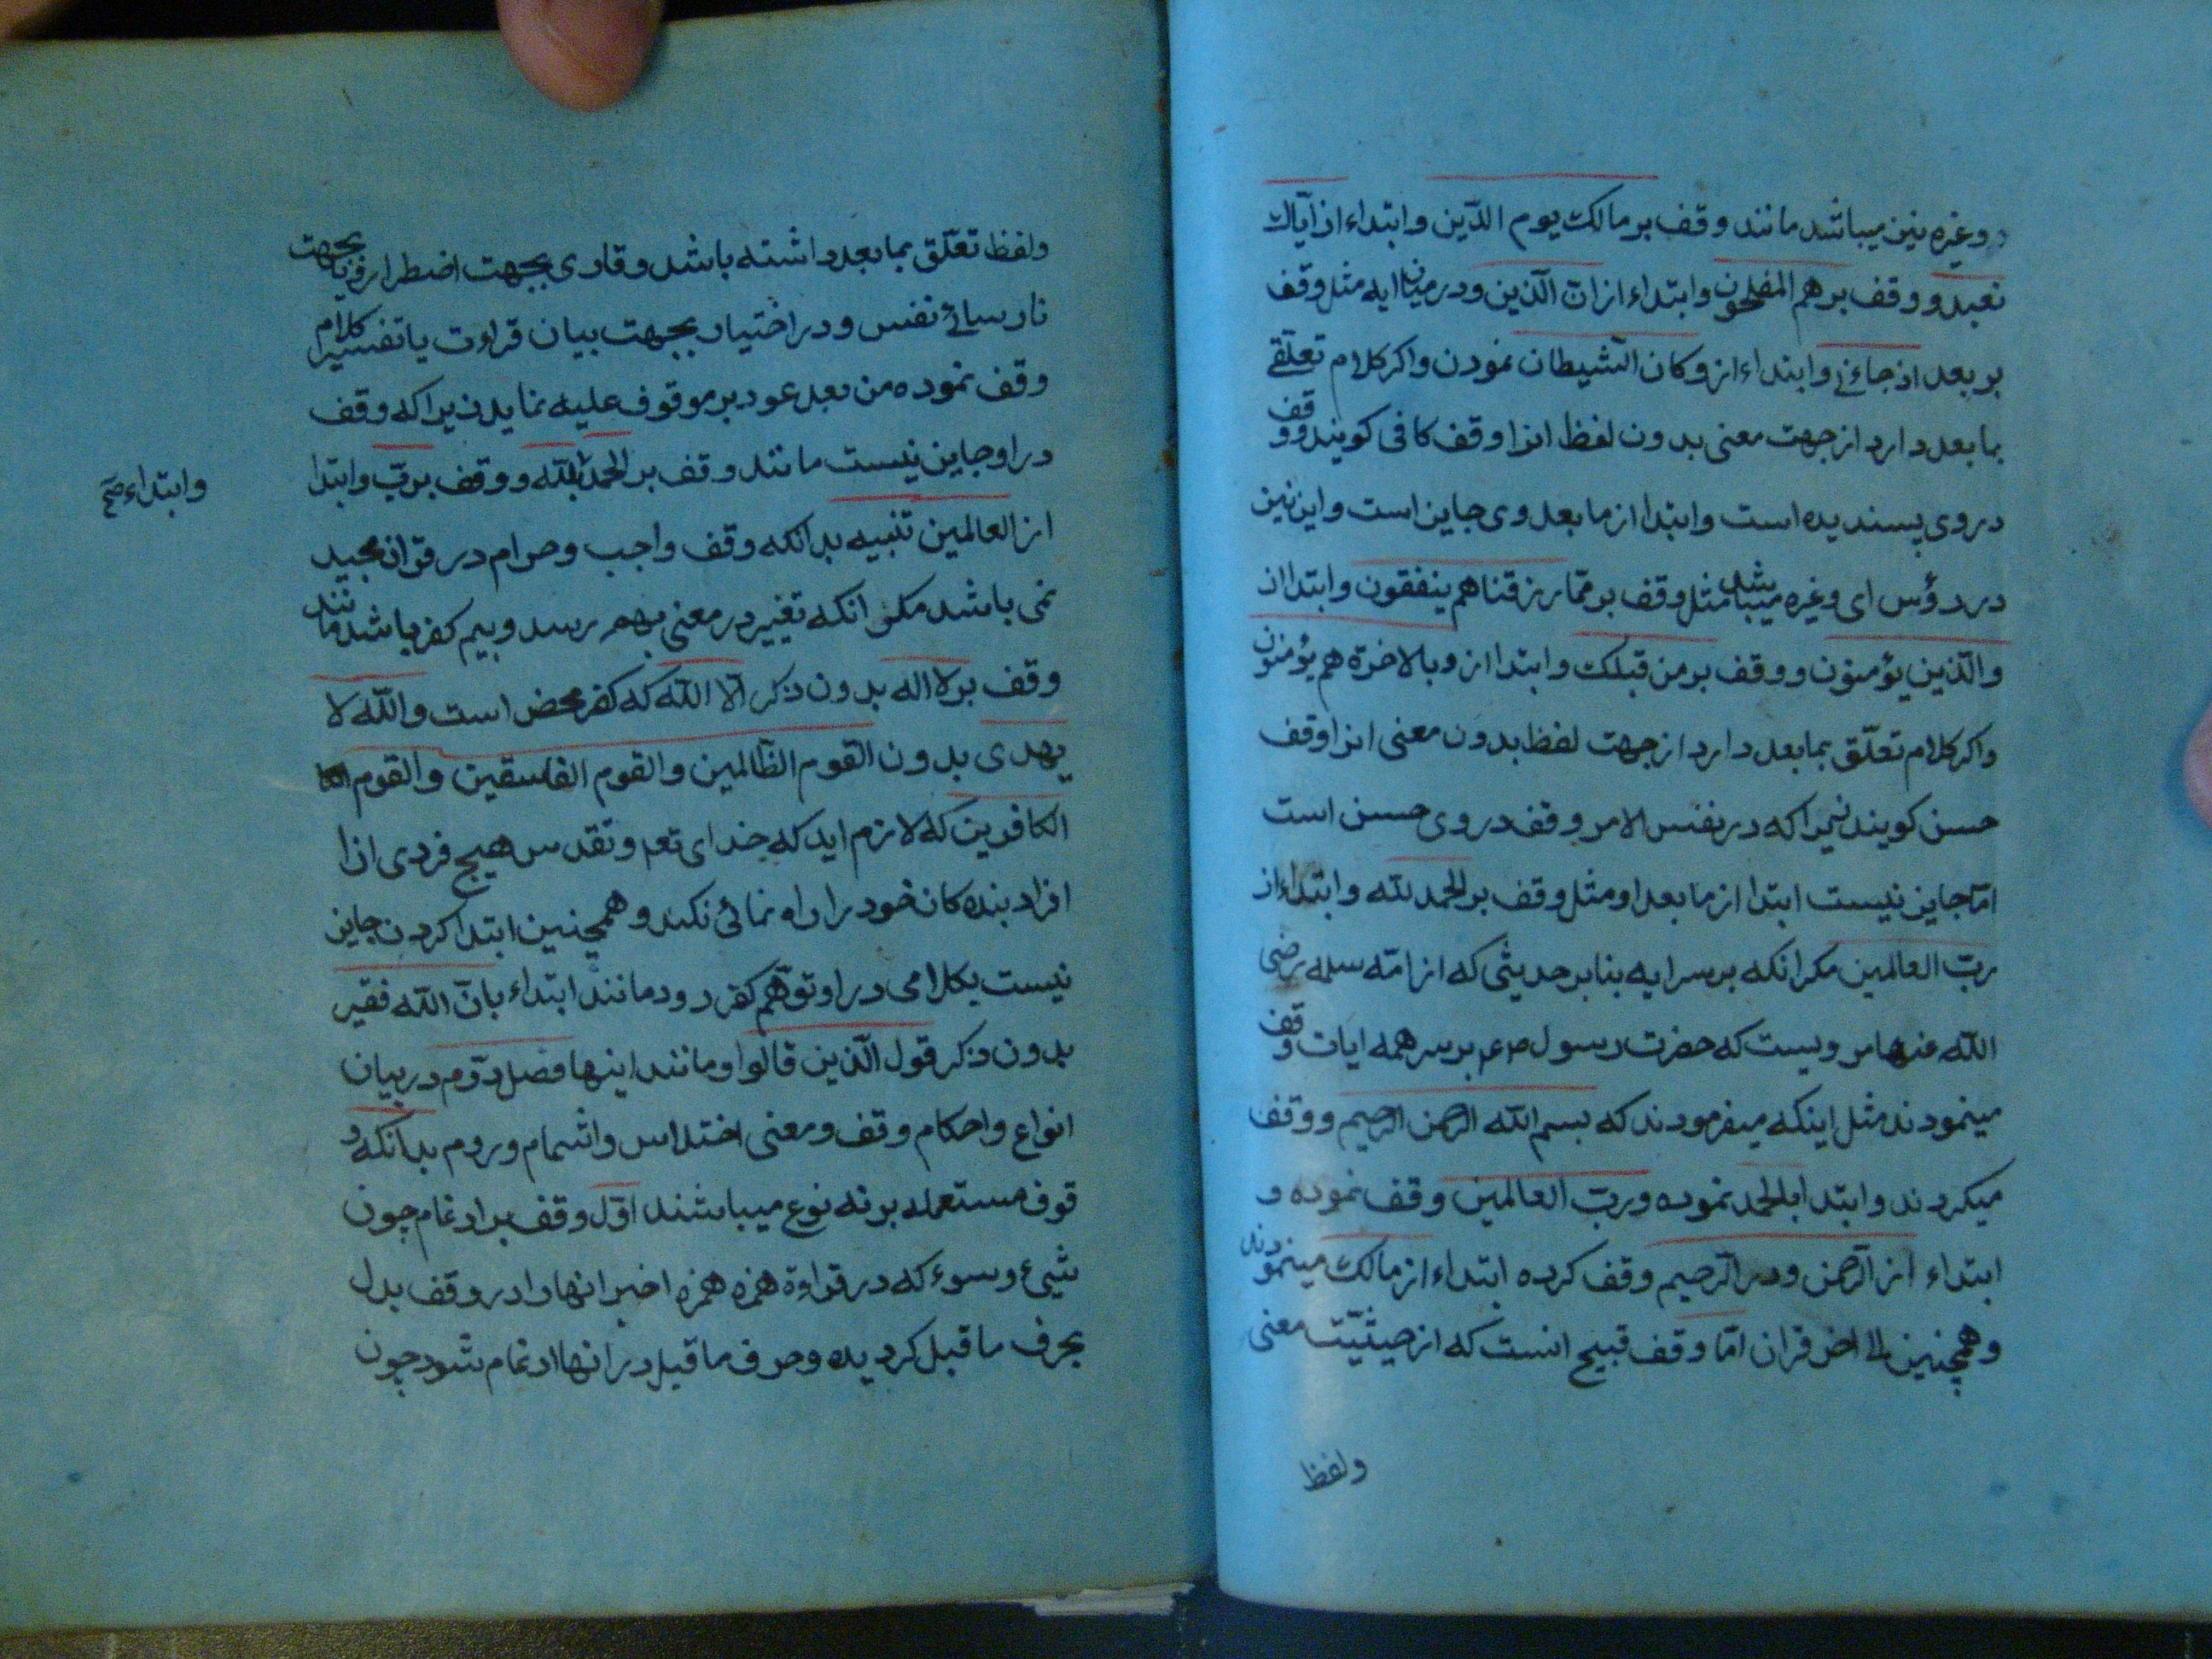 در وغیره نیز میباشد مانند وقف بر مالک یوم الدّین وابتداء از ایّاک
نعبد و وقف بر هم المفلحون وابتداء از انّ الّذین ودرمیان ایه مثل وقف
بر بعد اذ جاءنی وابتداء از وکان الشّیطان نمودن واکر کلام تعلّقی
بما بعد دارد از جهت معنی بدون لفظ انرا وقف کافی کویند ووقف
در وی پسندیده است وابتدا از ما بعد وی جایز است واین نیز
در رؤس ای وغیره میباشد مثل وقف بر ممّا رزقناهم ینفقون وابتدا از
والّذین یؤمنون ووقف بر من قبلک وابتدا از وبالاخرة هم یؤمنون
واکر کلام تعلّق بما بعد دارد از جهت لفظ بدون معنی انرا وقف
حسن کویند زیرا که در نفس الامر وقف در وی حسن است
امّا جایز نیست ابتدا از ما بعد او مثل وقف بر الحمد لله وابتداء از
ربّ العالمین مکر انکه بر سر ایه بنا بر حدیثی که از امّه سلمه رضی
الله عنها مرویست که حضرت رسول صلعم بر سر همه ایات وقف
مینمودند مثل اینکه میفرمودند که بسم الله الرحمن الرحیم ووقف
میکردند وابتدا بالحمد نموده وربّ العالمین وقف نموده و
ابتداء از الرّحمن ودر الرّحیم وقف کرده ابتداء از مالک مینمودند
وهمچنین الی اخر قران امّا وقف قبیح انست که از حیثیّت معنی
ولفظ
ولفظ تعلّق بما بعد داشته باشد وقاری بجهت اضطرار وزیا بجهت
نارسائی نفس ودر اختیار بجهت بیان قراوت یا تفسیر کلام
وقف نموده من بعد عود بر موقوف علیه نماید زیرا که وقف
در او جایز نیست مانند وقف بر الحمد لله ووقف بر ربّ وابتدا
وابتداء صح
از العالمین تنبیه بدانکه وقف واجب وحرام در قران مجید
نمی باشد مکر انکه تغییر در معنی بهم رسد وبیم کفر باشد مانند
وقف بر لا اله بدون ذکر الّا الله که کفر محض است والله لا
یهدی بدون القوم الظّالمین والقوم الفاسقین والقوم
الکافرین که لازم اید که خدای تعم وتقدس هیچ فردی از
افراد بنده کان خود را راه نمائی نکند وهمچنین ابتدا کردن جایز
نیست بکلامی در او توّهم کفر رود مانند ابتداء بانّ الله فقیر
بدون ذکر قول الّذین قالوا ومانند اینها فصل دوّم در بیان
انواع واحکام وقف ومعنی اختلاس واشمام وروم بدانکه و
قوف مستعمله بر نه نوع میباشند اوّل وقف بر ادغام چون
شیئ وسوء که در قراءة همزه همزه اخیر انها را در وقف بدل
بحرف ما قبل کردیده وحرف ما قبل در انها ادغام شود چون